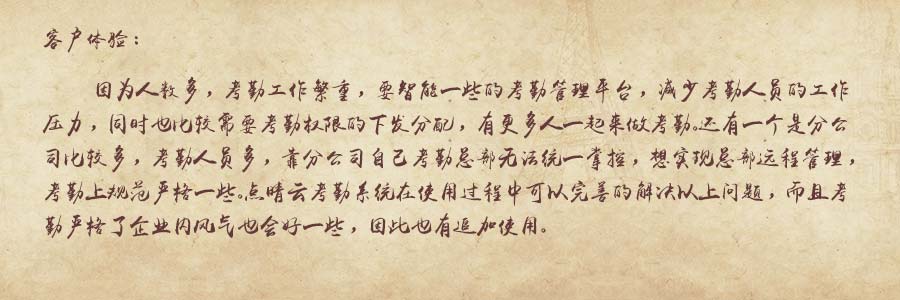 客户体验：
因为人数多，考勤工作繁重，要智能一些的考勤管理平台，减少考勤人员的工作
压力，同时也比较需要考勤权限的下发分配，有更多人一起来做考勤。还有一个是分公
司比较多，考勤人员多，靠分公司自己考勤总部无法统一掌控，想实现总部远程管理，
考勤上规范严格一些。点晴云考勤系统在使用过程中可以完善的解决以上问题，而且考
勤严格了企业内风气也会好一些，因此也有追加使用。